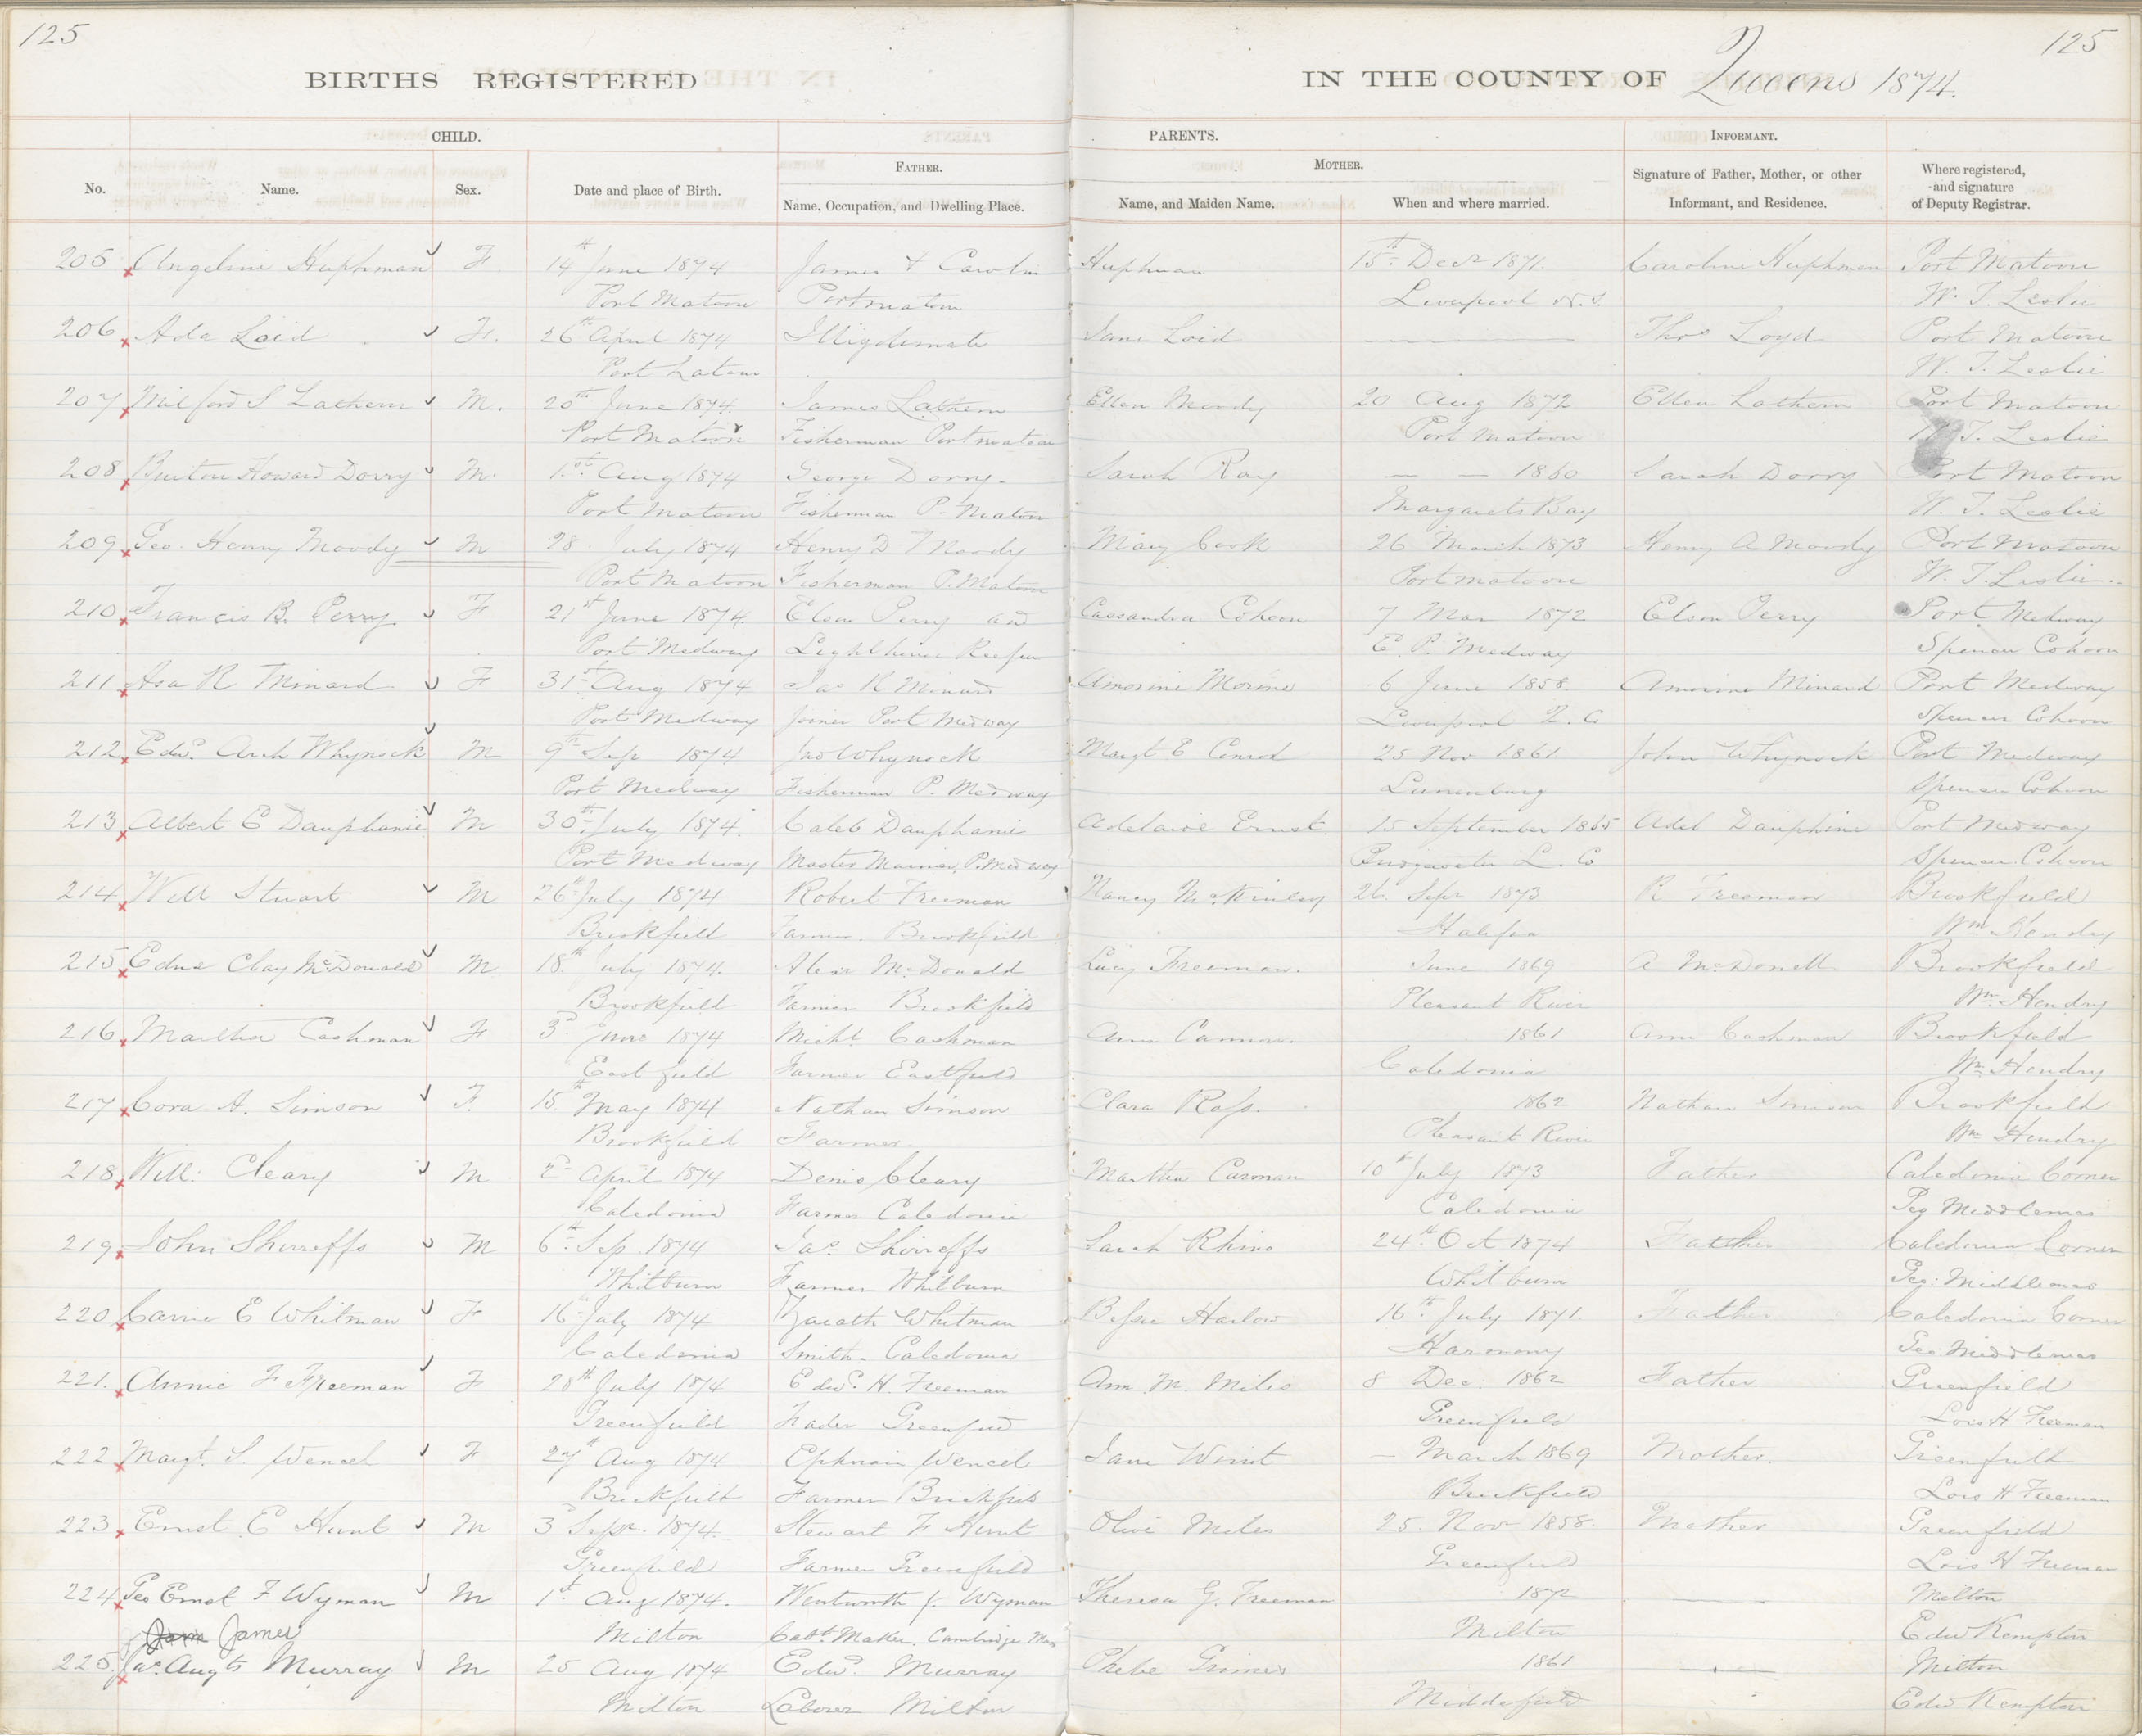 125
125
BIRTHS REGISTERED
IN THE COUNTY OF Queens 1874.
CHILD.
PARENTS.
INFORMANT.
No.
Name.
Sex.
Date and place of Birth.
FATHER.
Name, Occupation, and Dwelling Place.
MOTHER.
Name, and Maiden Name.
When and where married.
Signature of Father, Mother, or other
Informant, and Residence.
Where registered,
and signature
of Deputy Registrar.
205 Angeline Huphman F 14th June 1874 James & Carolin Huphman 15th Decr 1871. Caroline Huphman Port Matoon
Port Matoon Portmatoon Liverpool N.S. W. T. Leslie
206 Ada Loid F. 26th April 1874 Illigetemate Jane Loid Thos Loyd Port Matoon
Port Latour W. T. Leslie
207 Milford S Lathern M. 20th June 1874. James Lathern Ellen Moody 20 Aug 1872 Ellen Lathern Port Matoon
Port Matoon Fisherman Portmatoon Port Matoon W. T. Leslie
208 Burton Howard Dorry M. 1st Aug 1874 George Dorry. Sarah Ray — — 1860 Sarah Dorry Port Matoon
Port Matoon Fisherman P. Matoon Margarets Bay W. T. Leslie
209 Geo. Henry Moody M 28. July 1874 Henry D Moody Mary Cook 26 March 1873 Henry A Moody Port Matoon
Port Matoon Fisherman P. Matoon Portmatoon W. T. Leslie.
210 Francis B. Perry F 21st June 1874. Elson Perry and Cassandra Cohoon 7 Mar 1872 Elson Perry Port Medway
Port Medway Lighthouse Keeper E. P. Medway Spencer Cohoon
211 Asa R Minard F 31st Aug 1874 Jas R Minard Amorine Morine 6 June 1858. Amorine Minard Port Medway
Port Medway Joiner Port Medway Liverpool Q. Co Spencer Cohoon
212 Edwd. Arch Whynock M 9th Sep 1874 Jno Whynock Margt E Conrod 25 Nov 1861 John Whynock Port Medway
Port Medway Fisherman P. Medway Lunenburg Spencer Cohoon
213 Albert E Dauphanie M 30th July 1874. Caleb Dauphanie Adelaide Ernst. 15 September 1865 Adel Dauphine Port Medway
Port Medway Master Mariner, P. Medway Bridgewater L. Co Spencer Cohoon
214 Will Stuart M 26th July 1874 Robert Freeman Nancy McKinley 26. Sepr 1873 R Freeman Brookfield
Brookfield Farmer. Brookfield Halifax Wm Hendry
215 Edna Clay McDonald M. 18th July 1874. Alexr McDonald Lucy Freeman. June 1869 A McDonell Brookfield
Brookfield Farmer Brookfield Pleasant River Wm. Hendry
216 Martha Cashman F 3d June 1874 Michl Cashman Ann Cannon. 1861 Ann Cashman Brookfield
Eastfield Farmer Eastfield Caledonia Wm Hendry
217 Cora A. Simson F. 15th May 1874 Nathan Simson Clara Ross. 1862 Nathan Simson Brookfield
Brookfield Farmer. Pleasant River Wm Hendry
218 Will: Cleary M 2d April 1874 Denis Cleary Martha Carman 10th July 1873 Father Caledonia Corner
Caledonia Farmer Caledonia Caledonia Geo Middlemas
219 John Shirreffs M 6th Sep. 1874 Jas. Shirreffs Sarah Rhino 24th Oct 1874 Father Caledonia Corner
Whitburn Farmer Whitburn Whitburn Geo: Middlemas
220 Carrie E Whitman F 16 July 1874 Whitman Bessie Harlow 16th July 1871. Father Caledonia Corner
Caledonia Smith. Caledonia Harmony Geo Middlemas
221. Annie F Freeman F 28th July 1874 Edwd. H. Freeman Ann M. Miles 8 Dec. 1862 Father Greenfield
Greenfield Greenfield Greenfield Lois H Freeman
222 Margt. S. Wencel F 27th Aug 1874 Ephraim Wencel Jane — March 1869 Mother. Greenfield
Brookfield Farmer Brookfield Brookfield Lois H Freeman
223 Ernst. E Hunt M 3d Sepr. 1874. Stewart F Hunt Olive Miles 25. Nov 1858. Mother Greenfield
Greenfield Farmer Greenfield Greenfield Lois H Freeman
224 Geo Ernst F Wyman M 1st Aug 1874. Wentworth f. Wyman Theresa G. Freeman 1872 Milton
James Milton Cabt. Maker. Cambridge Mass Milton Edw Kempton
225 Jas. Augts Murray M 25 Aug 1874 Edwd. Murray Phebe Grimes 1861 Milton
Milton Laborer Milton Middlefield Edw Kempton